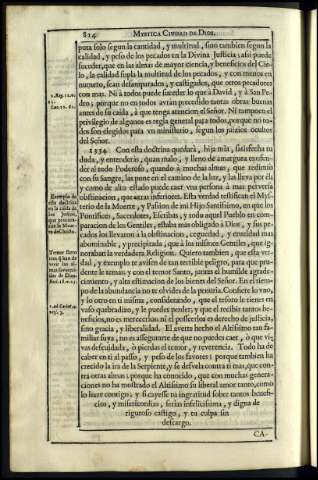 824 MYSTICA CIUDAD DE DIOS.
puta solo segun la cantidad, y multitud, sino tambien segun la
calidad, y peso de los pecados en la Divina Justicia; assi puede
suceder, que en las almas de mayor ciencia, y beneficios del Cie-
lo, la calidad supla la multitud de los pecados, y con menos en
numero, sean desamparados, y castigados, que otros pecadores
con mas. Ni à todos puede suceder lo que à David, y à San Pe-
dro; porque no en todos avràn precedido tantas obras buenas
antes de su caida, à que tenga atencion el Señor. Ni tampoco el
privilegio de algunos es regla general para todos, porque no to-
dos son elegidos para vn ministerio, segun los juizios ocultos
del Señor.
1334 Con esta doctrina quedarà, hija mia, satisfecha tu
duda, y entenderàs, quan malo, y lleno de amargura es ofen-
der al todo Poderoso, quando à muchas almas, que redimiò
con su Sangre, las pone en el camino de la luz, y las lleva por èl;
y como de alto estado puede caer vna persona à mas perversa
obstinacion, que otras inferiores. Esta verdad testifica el Mys-
terio de la Muerte, y Passion de mi Hijo Santissimo, en que los
Pontifices, Sacerdotes, Escribas, y todo aquel Pueblo en com-
paracion de los Gentiles, estaba mas obligado à Dios, y sus pe-
cados los llevaron à la obstinacion, ceguedad, y crueldad mas
abominable, y precipitada, que à los mismos Gentiles, que ig-
noraban la verdadera Religion. Quiero tambien, que esta ver-
dad, y exemplo te avisen de tan terrible peligro, para que pru-
dente le temas, y con el temor Santo, juntes el humilde agrade-
cimiento, y alta estimacion de los bienes del Señor. En el tiem-
po de la abundancia no te olvides de la penuria. Confiere lo vno,
y lo otro en ti misma, considerando, que el tesoro le tienes en
vaso quebradizo, y le puedes perder, y que el recibir tantos be-
neficios, no es merecerlos; ni el posseerlos es derecho de justicia,
sino gracia, y liberalidad. El averte hecho el Altissimo tan fa-
miliar suya, no es assegurarte de que no puedes caer, ò que vi-
vas descuidada, ò pierdas el temor, y reverencia. Todo ha de
caber en ti al passo, y peso de los favores; porque tambien ha
crecido la ira de la Serpiente, y se desvela contra ti mas, que con-
tra otras almas; porque ha conocido, que con muchas genera-
ciones no ha mostrado el Altissimo su liberal amor tanto, como
lo haze contigo; y si cayesse tu ingratitud sobre tantos benefi-
cios, y misericordias, serias infelicissima, y digna de
riguroso castigo, y tu culpa sin
descargo.
CA-
Exemplo de
esta doctrina
en la caida de
los Judios,